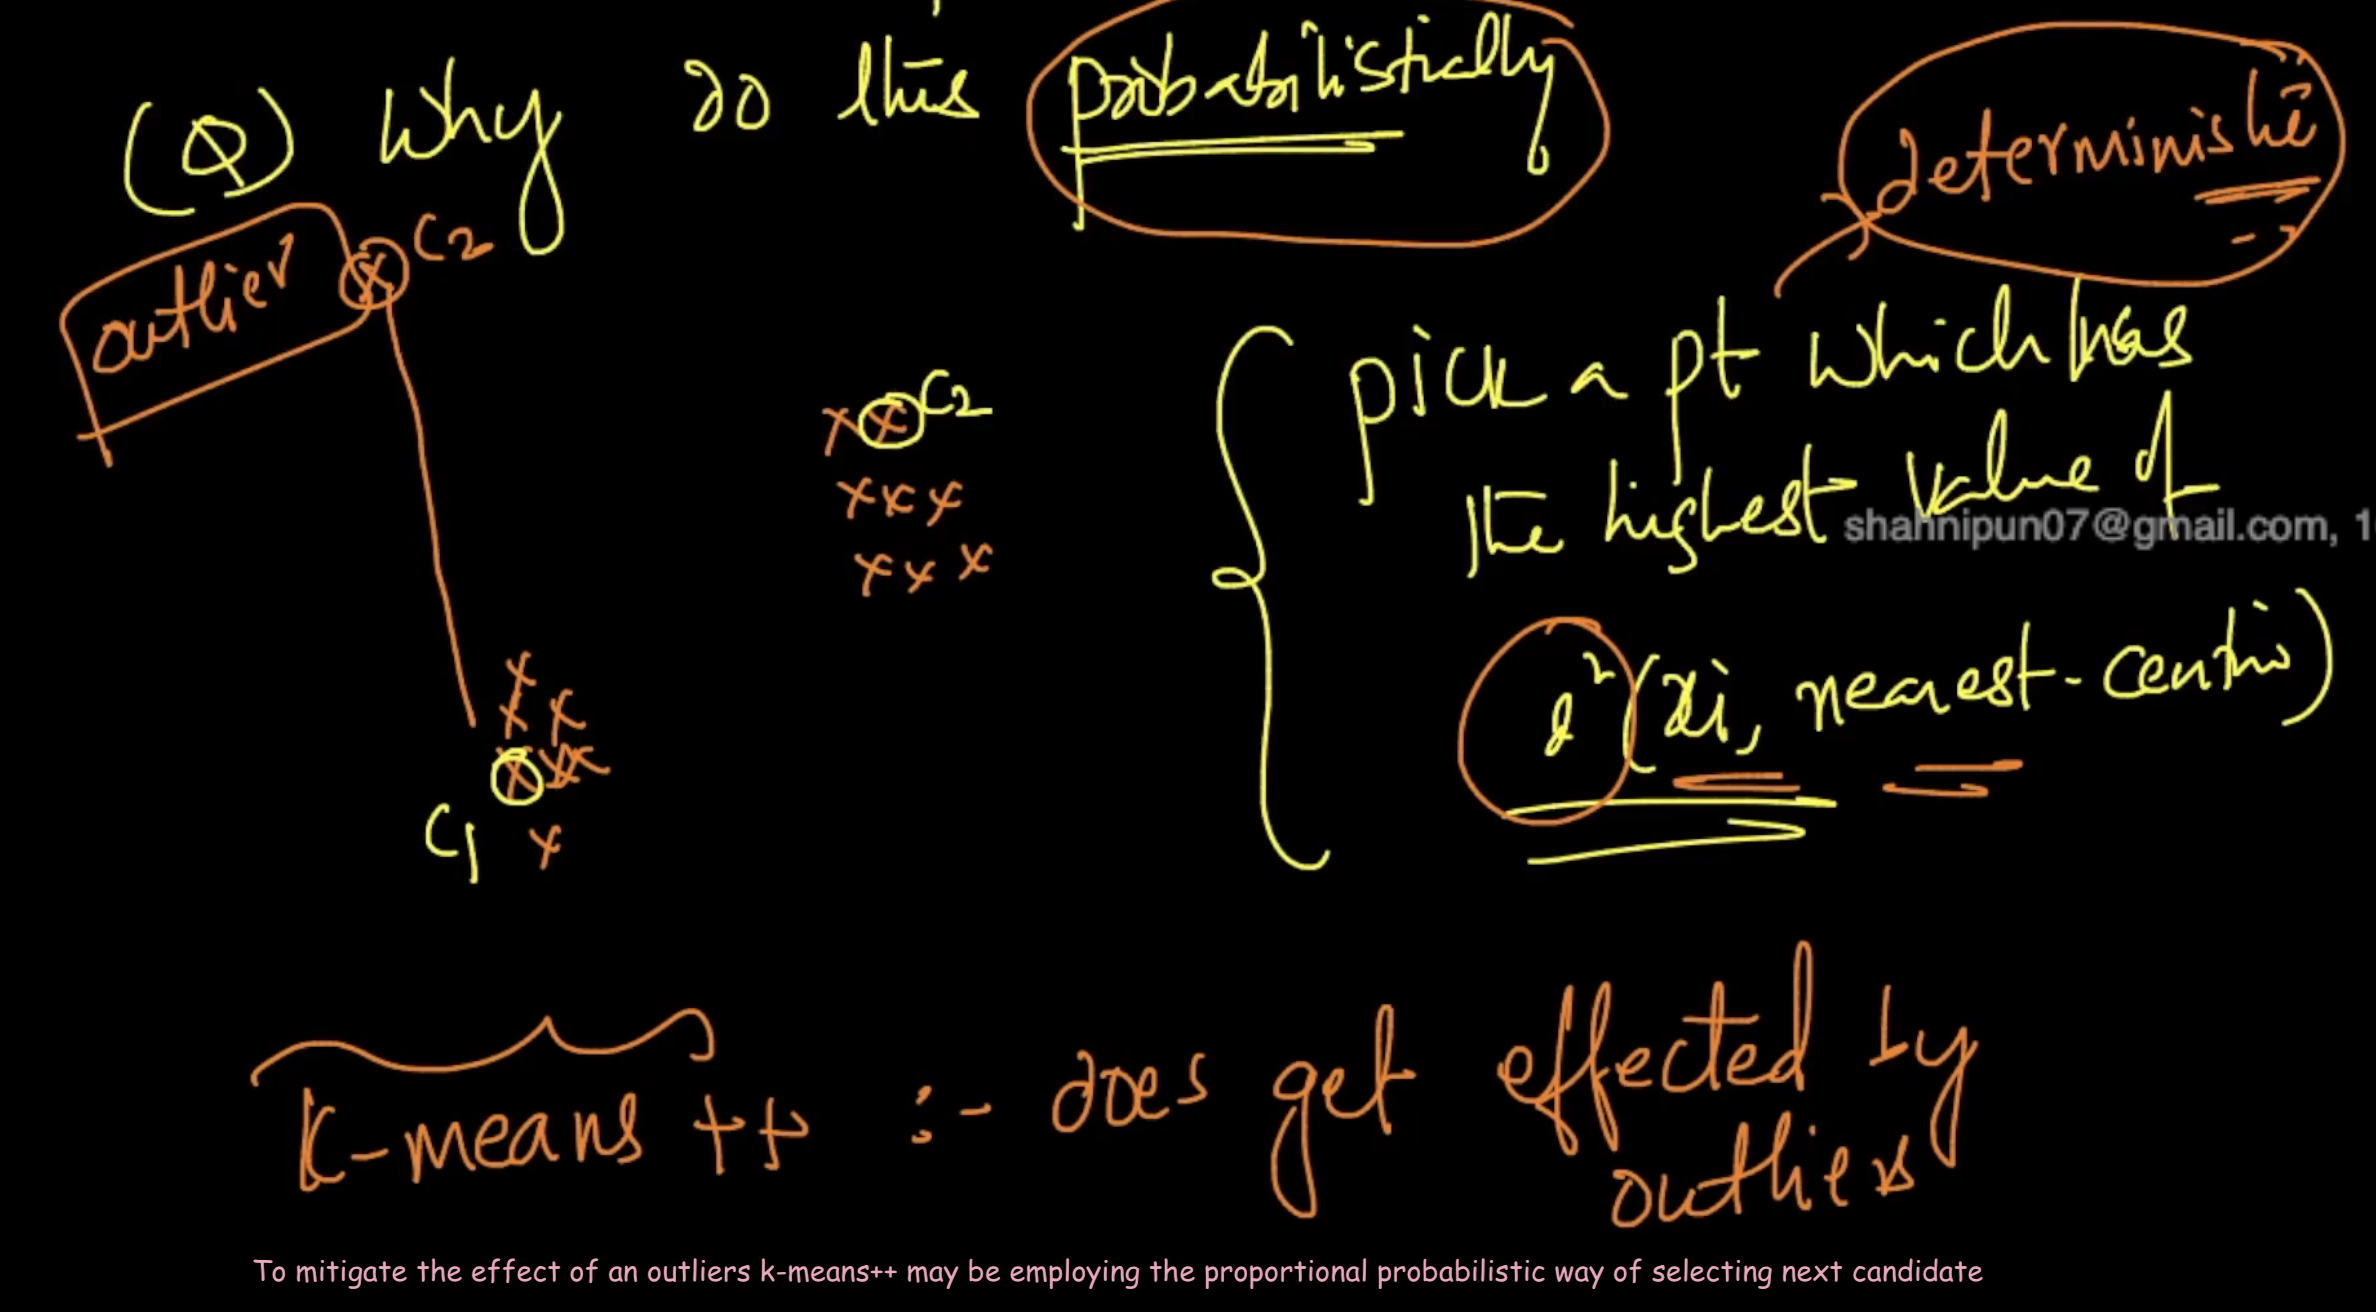 (Q) Why do this probabilistically
deterministic
outlier
C2
C2
pick a pt which has
the highest value of
shahnipun07@gmail.com, 1
d²(xi, nearest-centri)
C1
K-means ++ :- does get effected by
outliers
To mitigate the effect of an outliers k-means++ may be employing the proportional probabilistic way of selecting next candidate